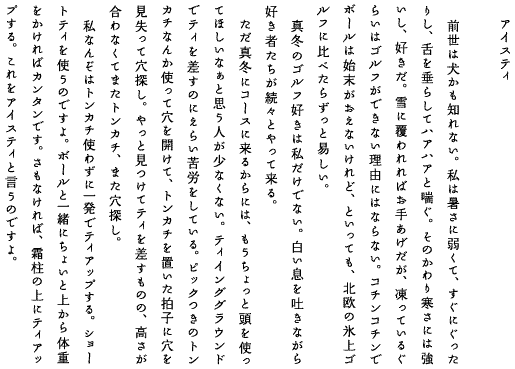 アイスティ
前世は犬かも知れない。私は暑さに弱くて、すぐにぐった
りし、舌を垂らしてハアハアと喘ぐ。そのかわり寒さには強
いし、好きだ。雪に覆われればお手あげだが、凍っているぐ
らいはゴルフができない理由にはならない。コチンコチンで
ボールは始末がおえないけれど、といっても、北欧の氷上ゴ
ルフに比べたらずっと易しい。
真冬のゴルフ好きは私だけでない。白い息を吐きながら
好き者たちが続々とやって来る。
ただ真冬にコースに来るからには、もうちょっと頭を使っ
てほしいなぁと思う人が少なくない。ティインググラウンド
でティを差すのにえらい苦労をしている。ピックつきのトン
カチなんか使って穴を開けて、トンカチを置いた拍子に穴を
見失って穴探し。やっと見つけてティを差すものの、高さが
合わなくてまたトンカチ、また穴探し。
私なんぞはトンカチ使わずに一発でティアップする。ショー
トティを使うのですよ。ボールと一緒にちょいと上から体重
をかければカンタンです。さもなければ、霜柱の上にティアッ
プする。これをアイスティと言うのですよ。